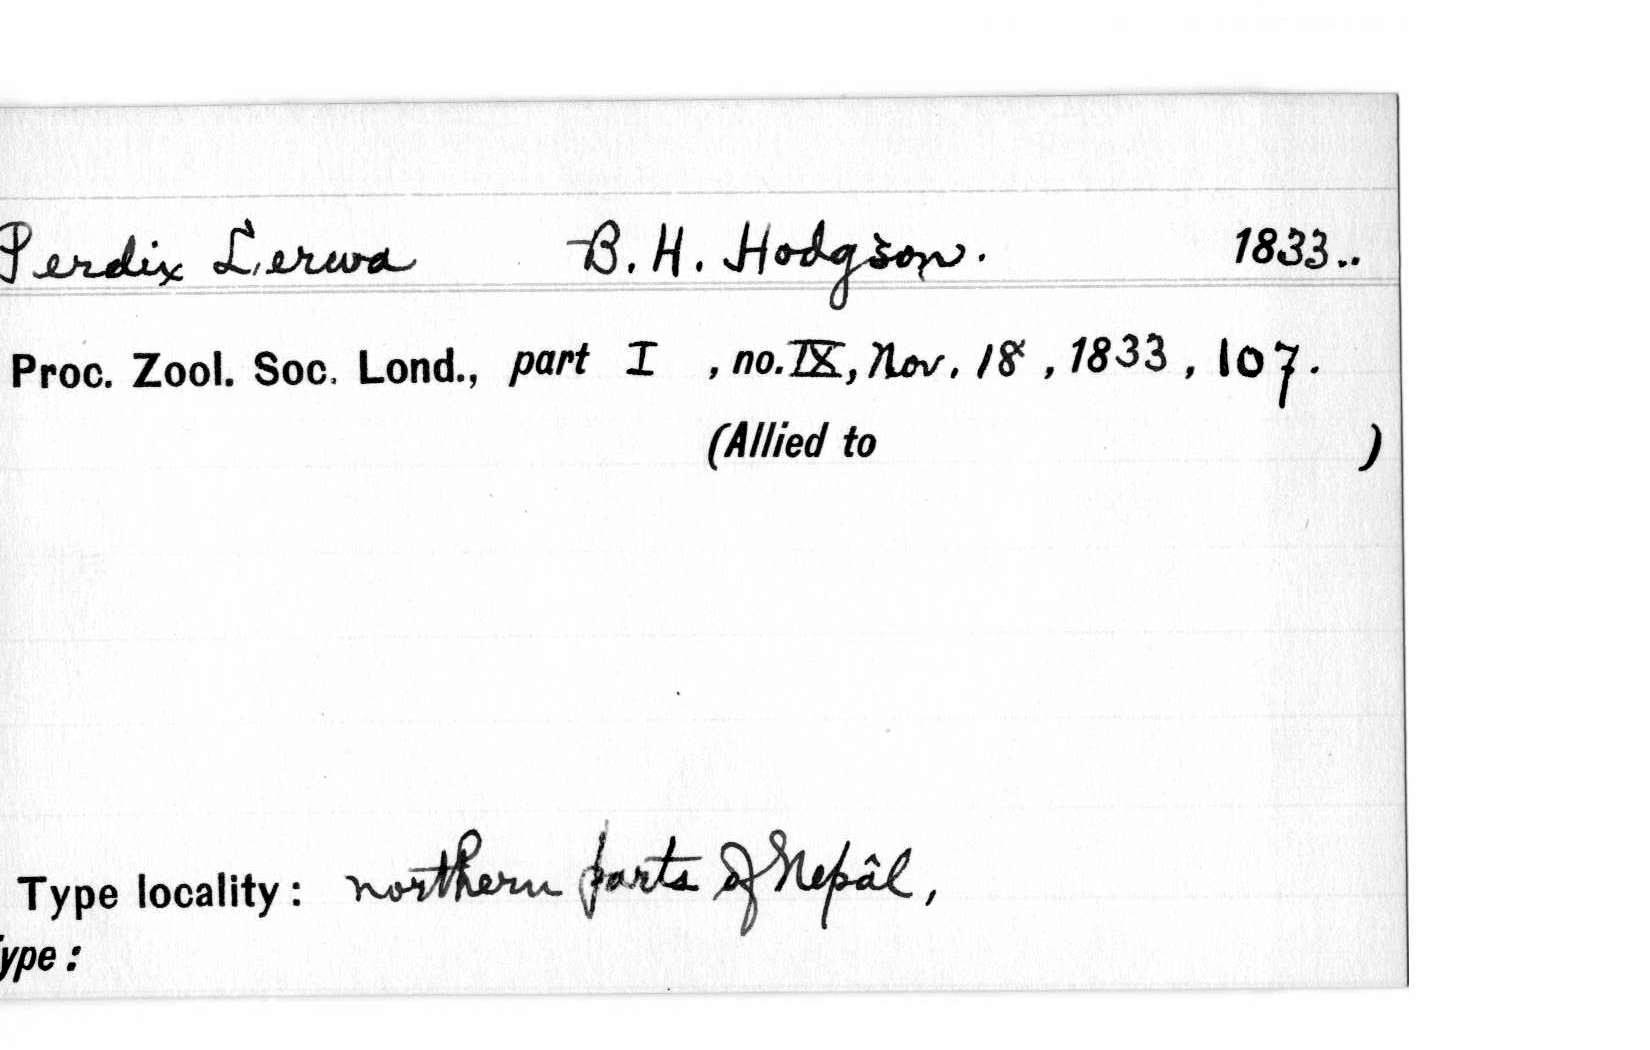 Perdix Lerwa B. H. Hodgson. 1833..
Proc. Zool. Soc. Lond., part I , no. IX, Nov. 18 , 1833 , 107.
(Allied to )
Type locality: northern parts of Nepâl,
ype: